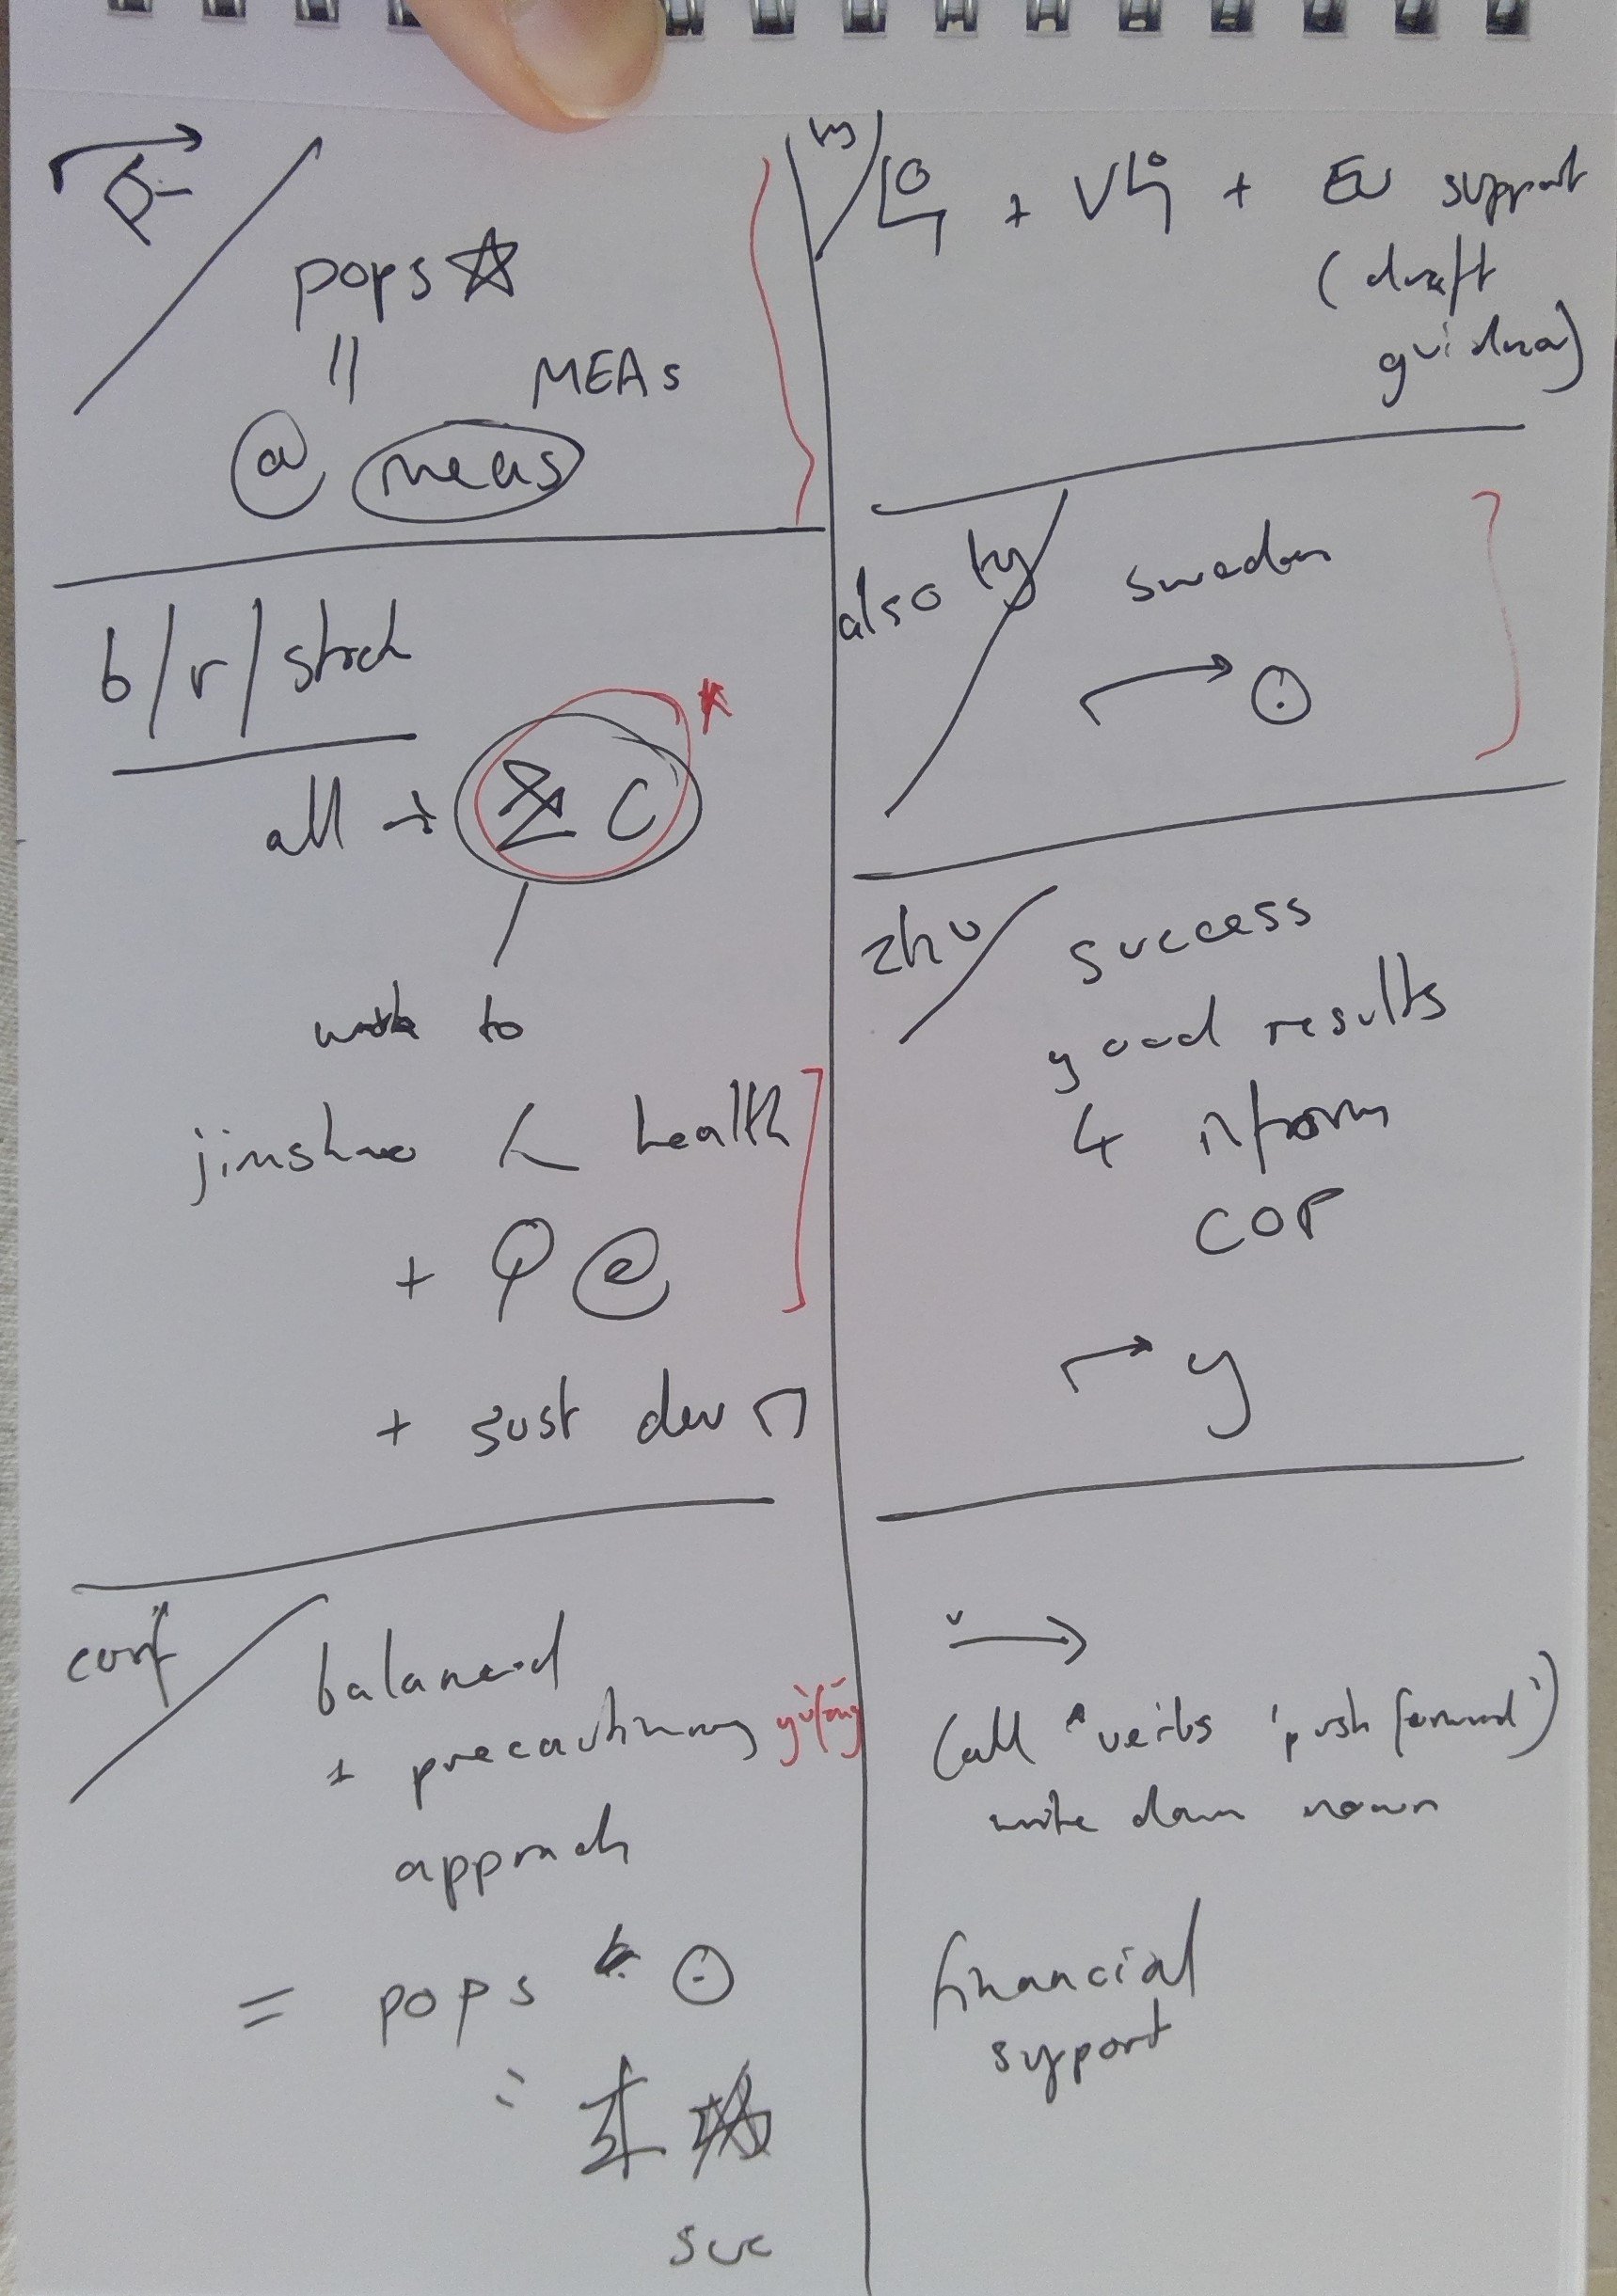 pops ☆
MEAs
@ meas
b/r/stock
all → C
to
jinshao health
+ @
+ sust dev
conf
balanced
+ precautionary yùfáng
approach
= pops
suc
ty
+ V + EU support
(draft
guidance)
also ty
sweden
zhu
success
good results
4 inform
COP
→ y
v
(all verbs 'push forward')
write down noun
financial
support